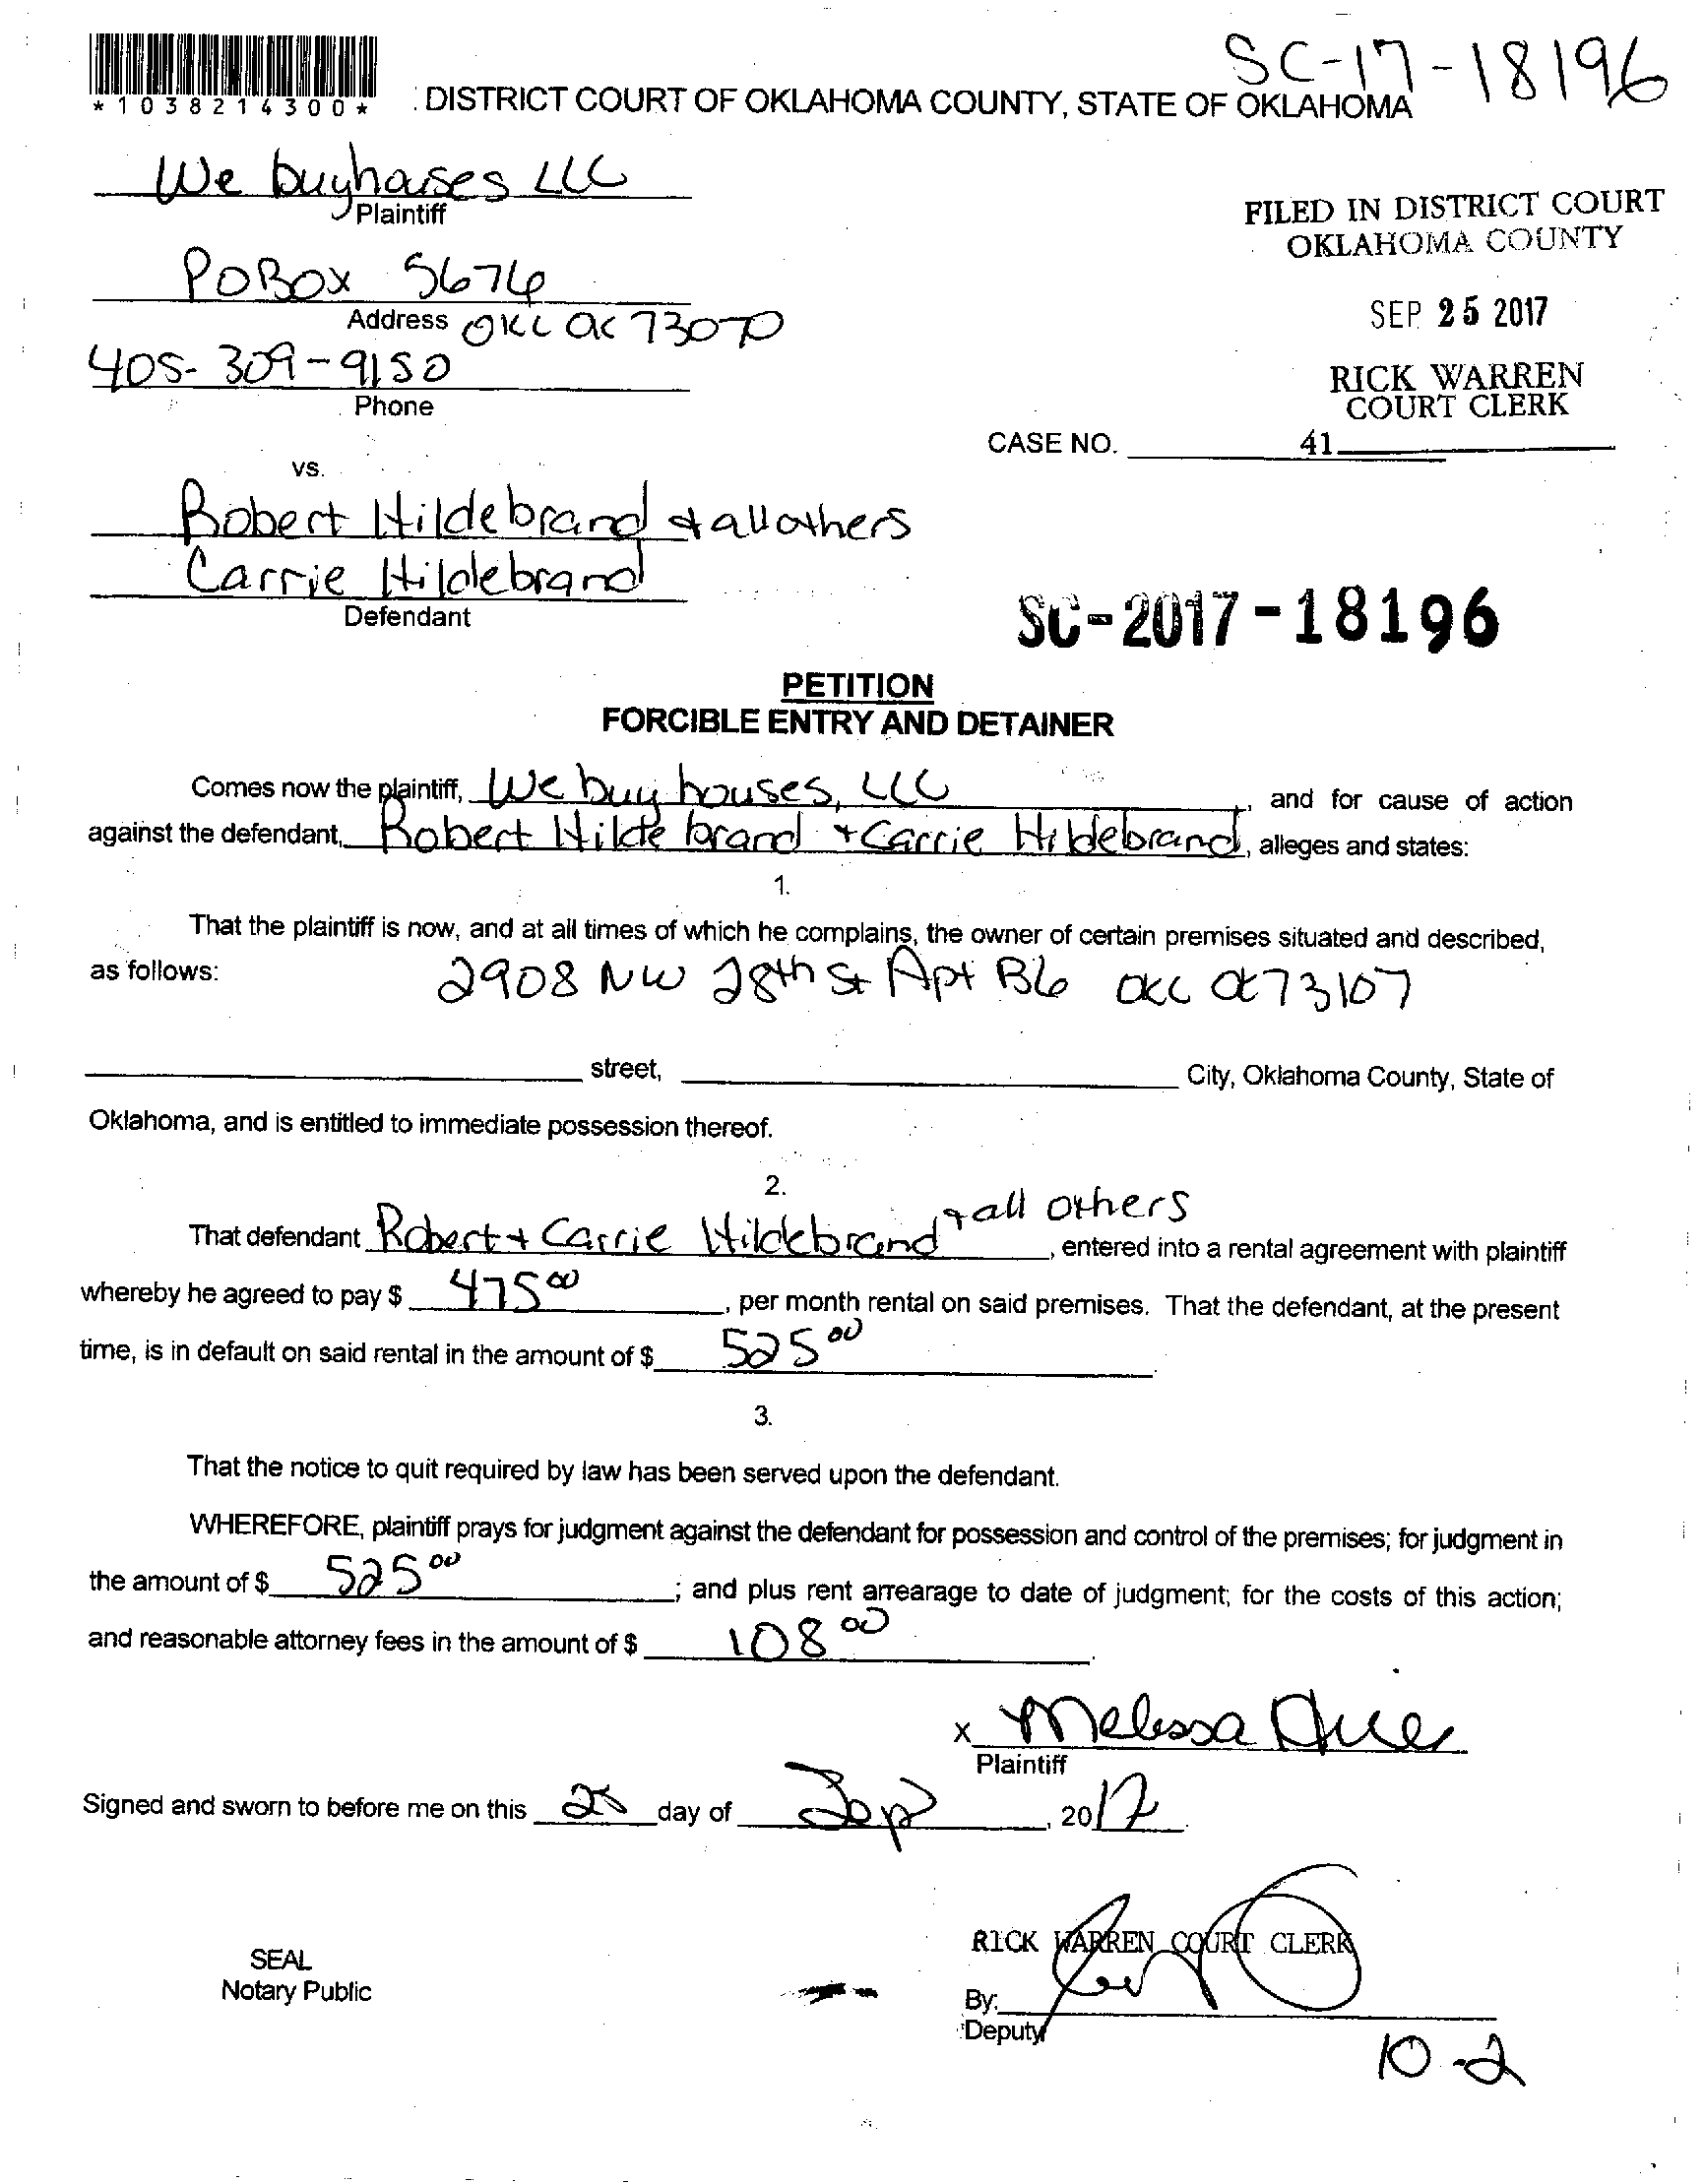 SC-17-18196
*1038214300*
DISTRICT COURT OF OKLAHOMA COUNTY, STATE OF OKLAHOMA
We buyhouses LLC
Plaintiff
FILED IN DISTRICT COURT
OKLAHOMA COUNTY
POBOX 5676
SEP 25 2017
Address OKC OK 73070
405-309-9150
Phone
RICK WARREN
COURT CLERK
CASE NO. 41
vs.
Robert Hildebrand & all others
Carrie Hildebrand
Defendant
SC-2017-18196
PETITION
FORCIBLE ENTRY AND DETAINER
Comes now the plaintiff, We buy houses, LLC, and for cause of action
against the defendant, Robert Hildebrand + Carrie Hildebrand, alleges and states:
1.
That the plaintiff is now, and at all times of which he complains, the owner of certain premises situated and described,
as follows: 2908 NW 28th St Apt B6 OKC OK 73107
street, City, Oklahoma County, State of
Oklahoma, and is entitled to immediate possession thereof.
2.
That defendant Robert + Carrie Hildebrand & all others, entered into a rental agreement with plaintiff
whereby he agreed to pay $ 475 00, per month rental on said premises. That the defendant, at the present
time, is in default on said rental in the amount of $ 525 00.
3.
That the notice to quit required by law has been served upon the defendant.
WHEREFORE, plaintiff prays for judgment against the defendant for possession and control of the premises; for judgment in
the amount of $ 525 00; and plus rent arrearage to date of judgment; for the costs of this action;
and reasonable attorney fees in the amount of $ 108 00.
x Melissa
Plaintiff
Signed and sworn to before me on this 25 day of Sep, 2017.
RICK WARREN COURT CLERK
SEAL
Notary Public
By:
Deputy
10-2